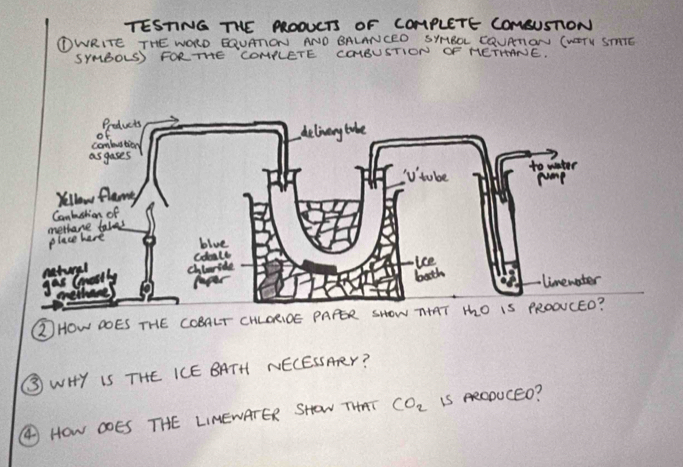 TESTING THE PRODUCTS OF COMPLETE COMBUSTION
① WRITE THE WORD EQUATION AND BALANCED SYMBOL EQUATION (WITH STATE
SYMBOLS) FOR THE COMPLETE COMBUSTION OF METHANE.
Products
of
combustion
as gases
delivery tube
'U' tube
to water
pump
Yellow flame
Combustion of
methane takes
place here
blue
cobalt
chloride
paper
natural
gas (mostly
methane)
ice
bath
limewater
② HOW DOES THE COBALT CHLORIDE PAPER SHOW THAT H₂O IS PRODUCED?
③ WHY IS THE ICE BATH NECESSARY?
④ HOW DOES THE LIMEWATER SHOW THAT CO₂ IS PRODUCED?